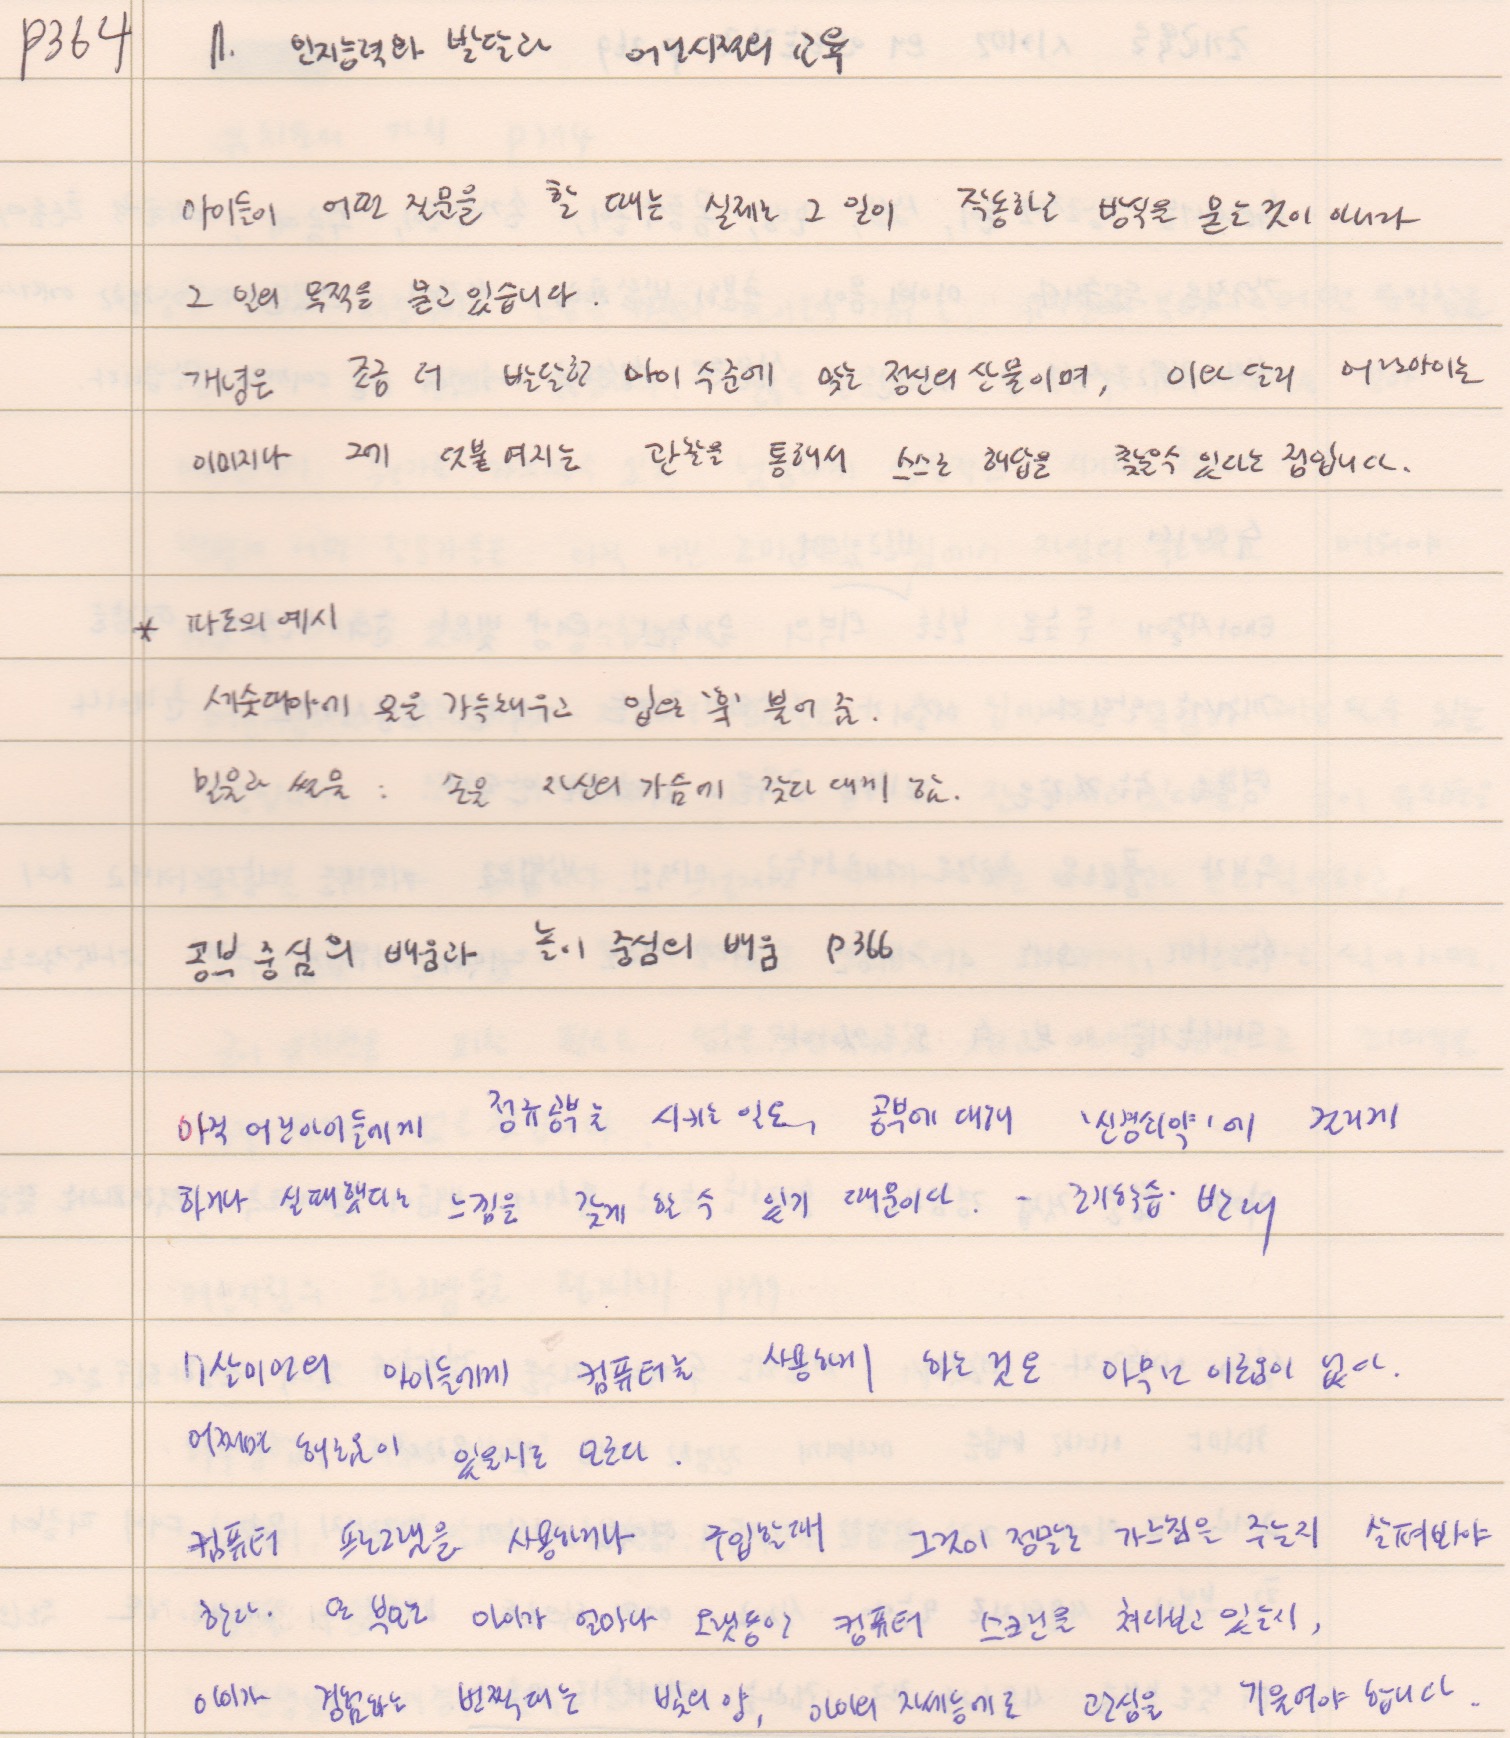 p364 11. 인지능력의 발달과 어린시절의 교육
아이들이 어떤 질문을 할 때는 실제는 그 일이 작동하는 방식을 묻는것이 아니라
그 일의 목적을 묻고 있습니다.
개념은 조금 더 발달한 아이 수준에 맞는 정신의 산물이며, 이와 달리 어린아이는
이미지나 그에 덧붙여지는 관찰을 통해서 스스로 해답을 찾을수 있다는 점입니다.
* 파도의 예시
세숫대야에 물을 가득채우고 입으로 '훅' 불어 줌.
밀물과 썰물 : 손을 자신의 가슴에 갖다 대게 함.
공부 중심의 배움과 놀이 중심의 배움 p366
아직 어린아이들에게 정규공부를 시키는 일로, 공부에 대해 '신경쇠약'에 걸리게
하거나 실패했다는 느낌을 갖게 할 수 있기 때문이다. - 조기학습 반대
11살이전의 아이들에게 컴퓨터를 사용하게 하는 것은 아무런 이로움이 없다.
어쩌면 해로움이 있을지도 모른다.
컴퓨터 프로그램을 사용하거나 구입할때 그것이 정말로 가르침을 주는지 살펴봐야
한다. 또 부모는 아이가 얼마나 오랫동안 컴퓨터 스크린을 쳐다보고 있는지,
아이가 경험하는 번쩍대는 빛의 양, 아이의 자세등에도 관심을 기울여야 합니다.